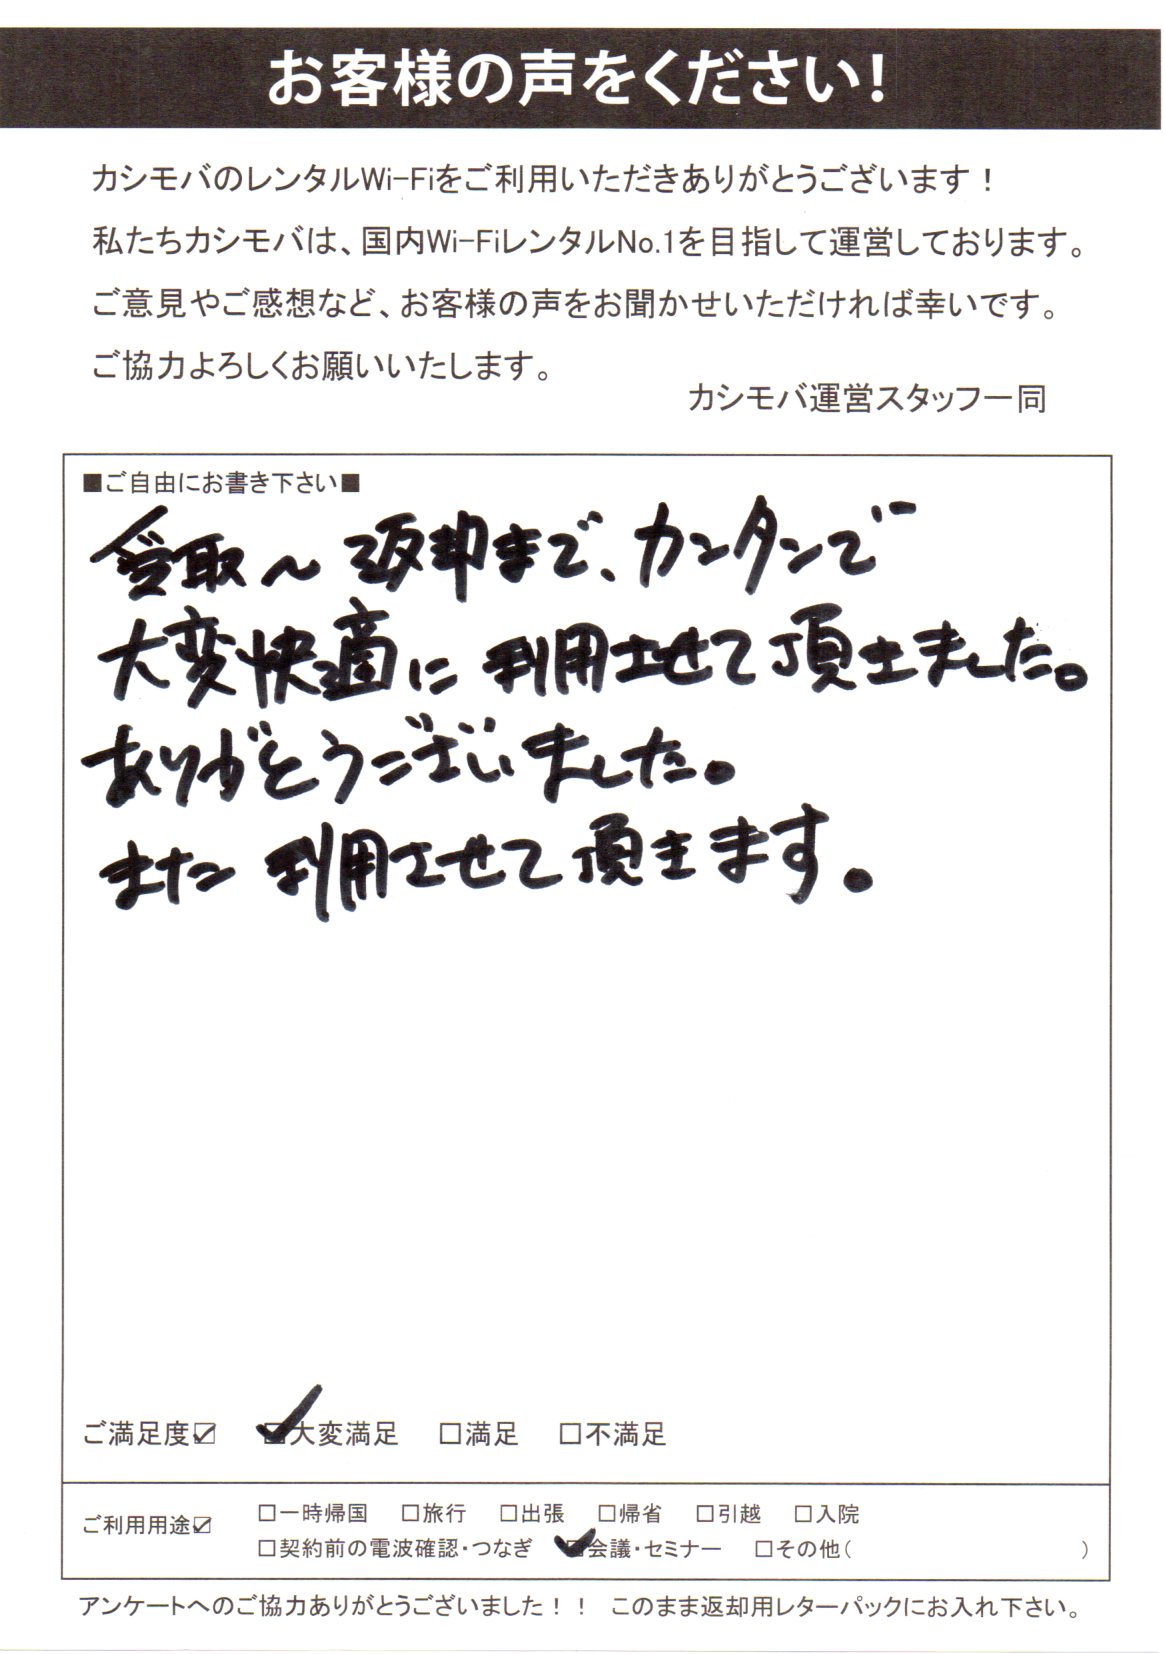 お客様の声をください!
カシモバのレンタルWi-Fiをご利用いただきありがとうございます！
私たちカシモバは、国内Wi-FiレンタルNo.1を目指して運営しております。
ご意見やご感想など、お客様の声をお聞かせいただければ幸いです。
ご協力よろしくお願いいたします。
カシモバ運営スタッフ一同
■ご自由にお書き下さい■
受取～返却まで、カンタンで
大変快適に利用させて頂きました。
ありがとうございました。
また利用させて頂きます。
ご満足度☑ ☑大変満足 □満足 □不満足
ご利用用途☑ □一時帰国 □旅行 □出張 □帰省 □引越 □入院
□契約前の電波確認・つなぎ ☑会議・セミナー □その他( )
アンケートへのご協力ありがとうございました！！ このまま返却用レターパックにお入れ下さい。